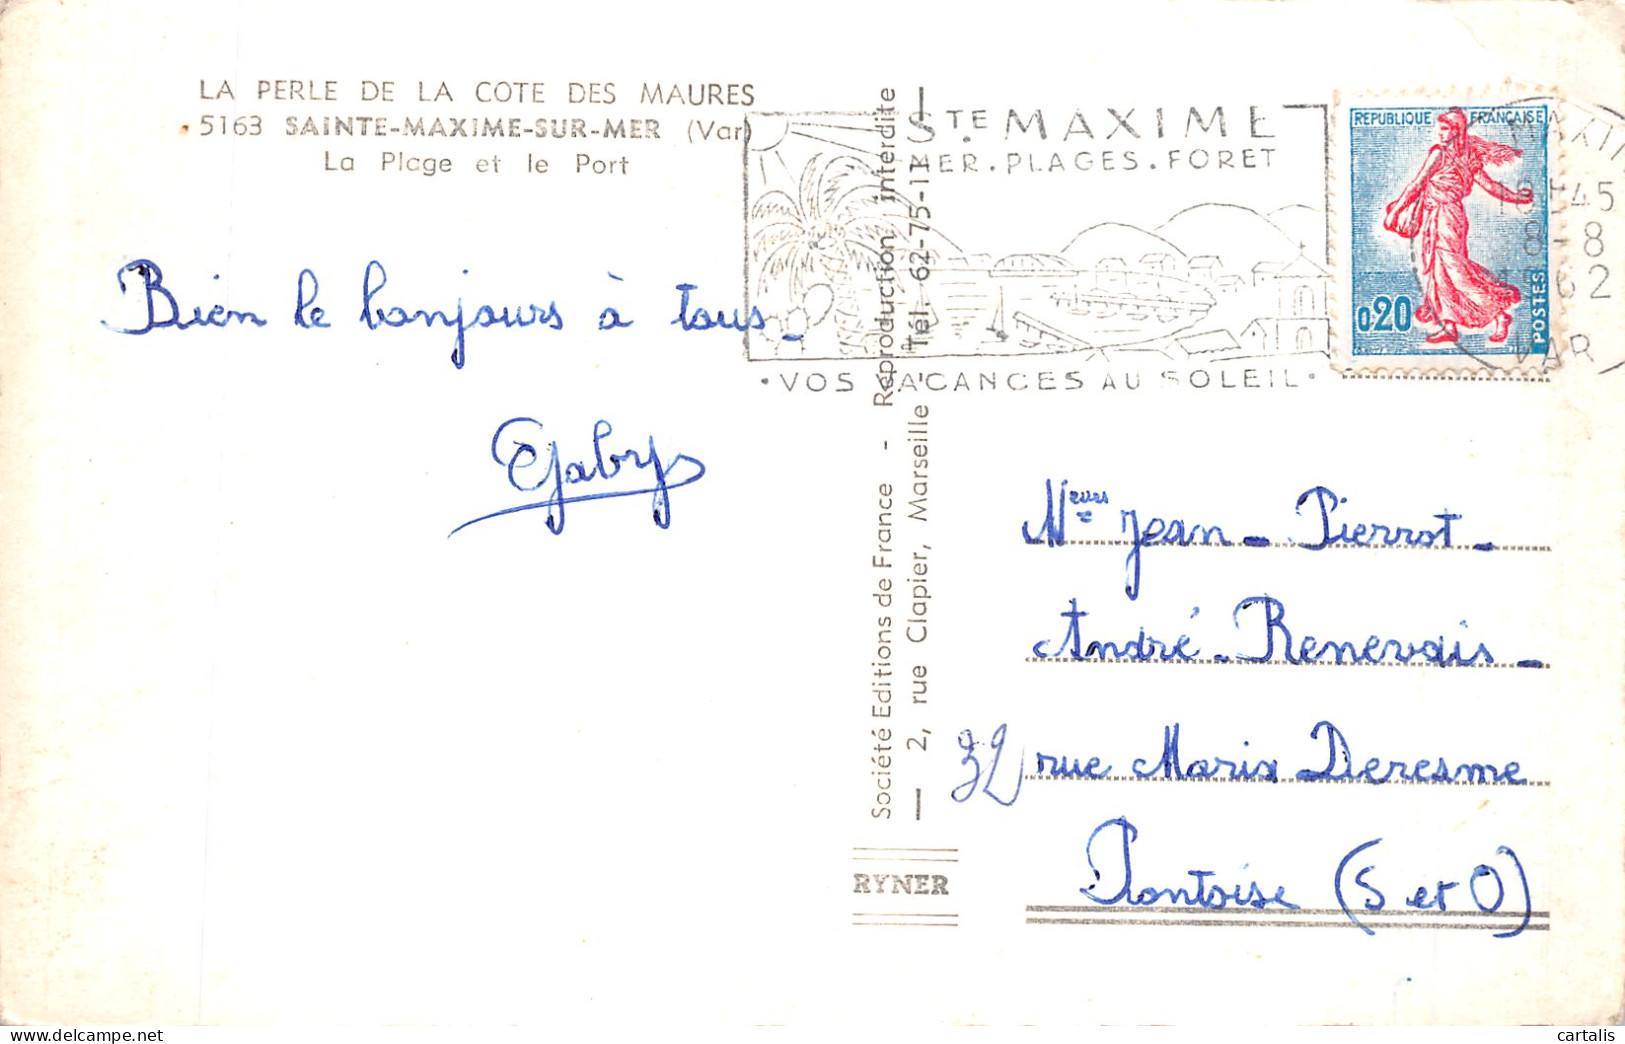 LA PERLE DE LA COTE DES MAURES
5163 SAINTE-MAXIME-SUR-MER (Var)
La Plage et le Port
Bien le bonjours à tous -
Gaby
Société Editions de France - Reproduction interdite
2, rue Clapier, Marseille - Tél. 62-75-11
RYNER
STE MAXIME
MER. PLAGES. FORET
• VOS VACANCES AU SOLEIL •
REPUBLIQUE FRANÇAISE
0,20
POSTES
MAXI
18H45
8-8
1962
VAR
Meurs Jean - Pierrot -
André - Renevais -
32 rue Maria Deresme
Pontoise (S et O)
cartalis